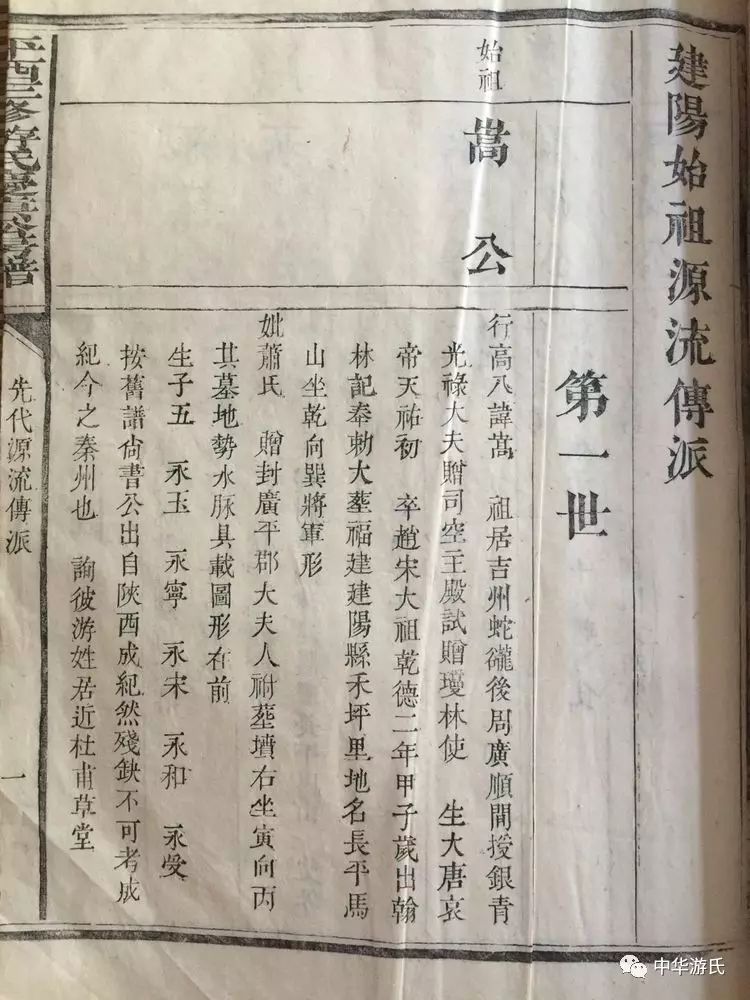 建陽始祖源流傳派
第一世
始祖
嵩公
行高八諱嵩　祖居吉州蛇巃後周廣順間授銀青
光祿大夫贈司空主殿試贈瓊林使　生大唐哀
帝天祐初　卒趙宋大祖乾德二年甲子歲出翰
林記奉勅大葬福建建陽縣禾坪里地名長平馬
山坐乾向巽將軍形
妣蕭氏　贈封廣平郡大夫人祔葬墳右坐寅向丙
其墓地勢水脉具載圖形在前
生子五　永玉　永寧　永宋　永和　永受
按舊譜尙書公出自陜西成紀然殘缺不可考成
紀今之秦州也　詢彼游姓居近杜甫草堂
先代源流傳派
一
中华游氏